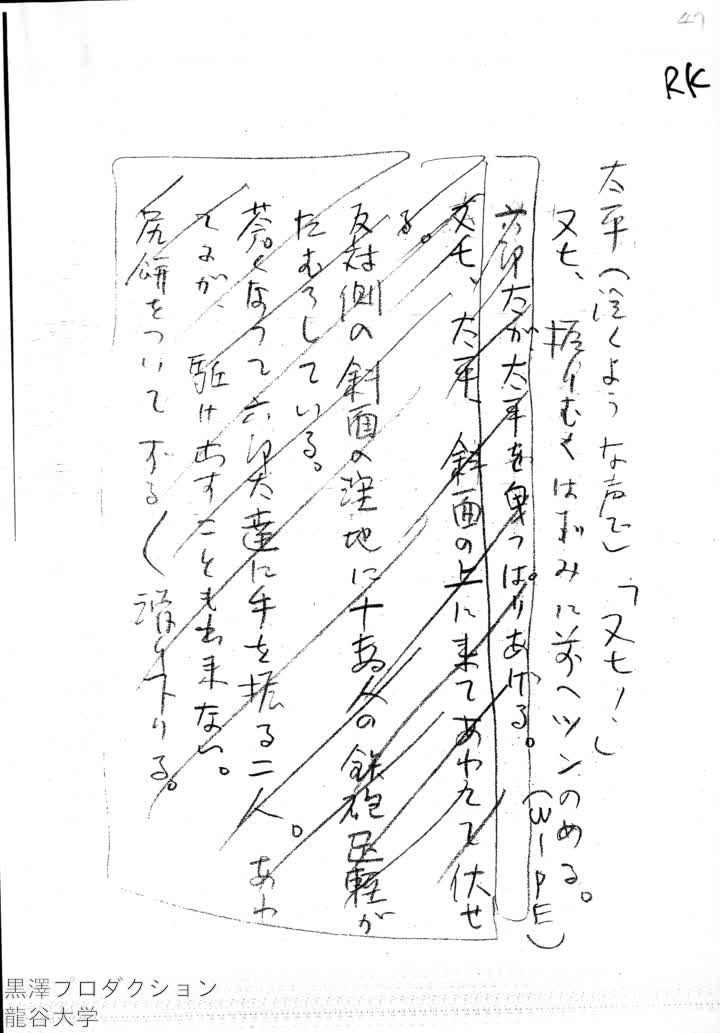 47
RK
太平（泣くような声で）「又七！」
又七、振りむくはずみに前へツンのめる。
(WIPE)
六郎太が太平を引っぱりあげる。
又七、太平、斜面の上に来てあわてて伏せ
る。
反対側の斜面の窪地に十数人の鉄砲足軽が
たむろしている。
蒼くなって六郎太達に手を振る二人。あわ
てるが、駈け出すことも出来ない。
尻餅をついてずる〱滑り下りる。
黒澤プロダクション
龍谷大学